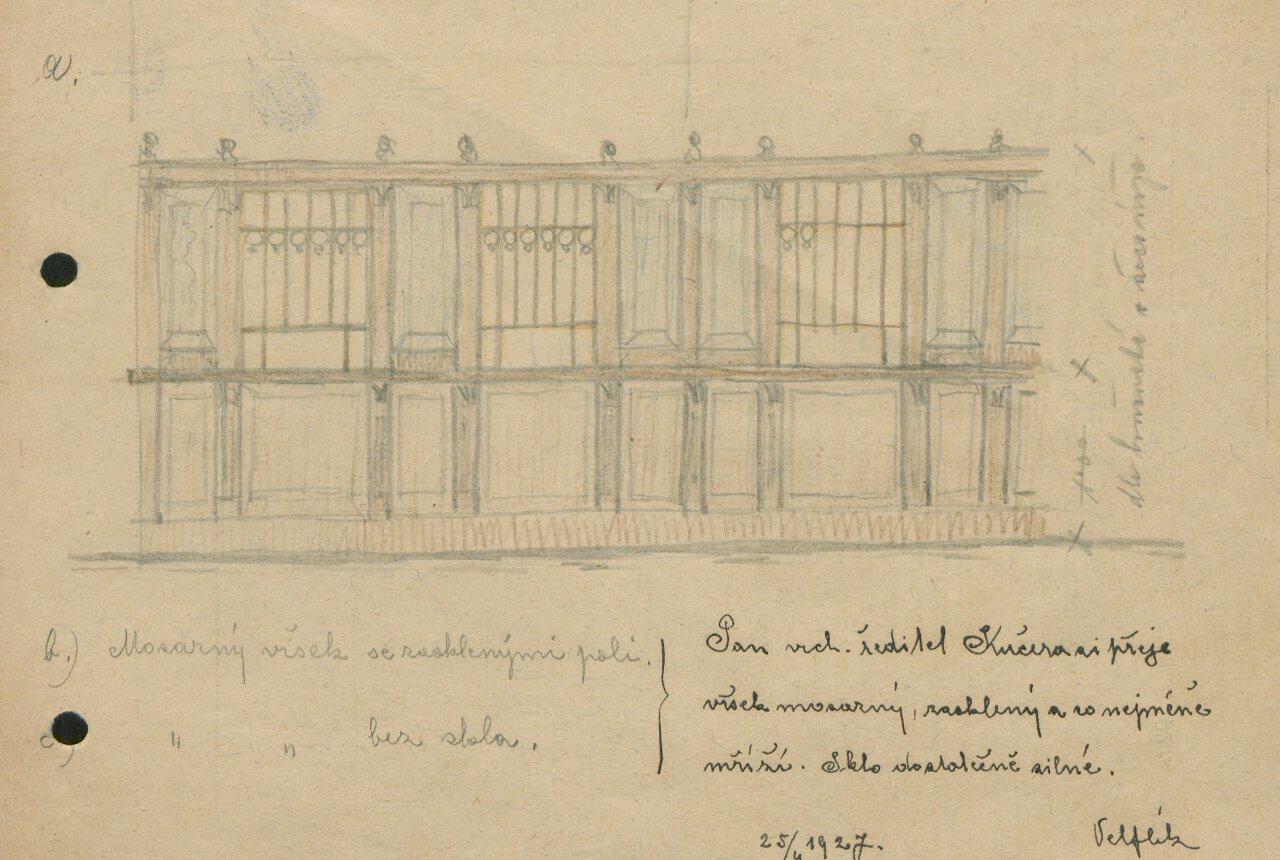 a.
b.) Mosazný všek se zasklenými poli.
c.) " " bez skla.
Pan vrch. ředitel Kučera si přeje
všek mosazný, zasklený a co nejméně
mříží. Sklo dostatečně silné.
25/4 1927. Velflík